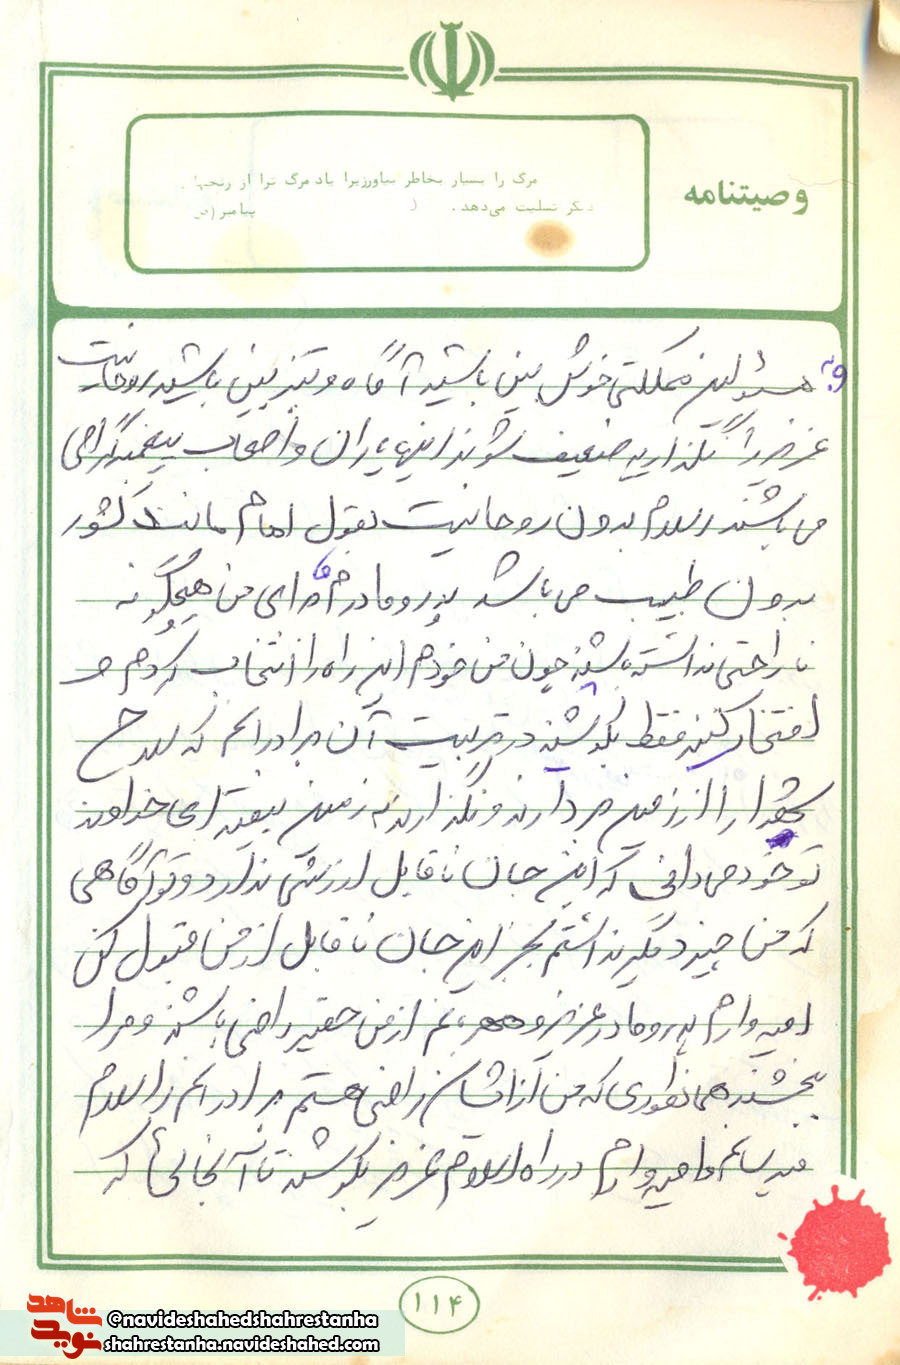 وصیتنامه
مرگ را بسیار بخاطر بیاورزیرا یاد مرگ ترا از رنجهای
دیگر تسلیت می‌دهد.
پیامبر (ص
و به مسئولین مملکتی خوش بین باشید آگاه و تیزبین باشید روحانیت
عزیز را نگذارید ضعیف شوند اینها یاران و اصحاب پیغمبر گرامی
می باشند اسلام بدون روحانیت بقول امام مانند کشور
بدون طبیب می باشد پدر و مادرم ها برای من هیچگونه
ناراحتی نداشته باشید چون من خودم این راه را انتخاب کردم و
افتخار کنید فقط بکوشید در تربیت آن برادرانم که سلاح
شهدا را از زمین بردارند و نگذارند به زمین بیفتد ای خداوند
تو خود می دانی که این جان ناقابل ارزشی ندارد و تو آگاهی
که من چیز دیگر نداشتم بجز این جان ناقابل از من قبول کن
امیدوارم پدر و مادر عزیز و همسرم از من حقیر راضی باشند و مرا
ببخشند همانطوری که من از آنشان راضی هستم برادرانم را سلام
میرسانم و امیدوارم در راه اسلام عزیز بکوشند تا آنجائی که
۱۱۴
شاهد
نوید
@navideshahedshahrestanha
shahrestanha.navideshahed.com